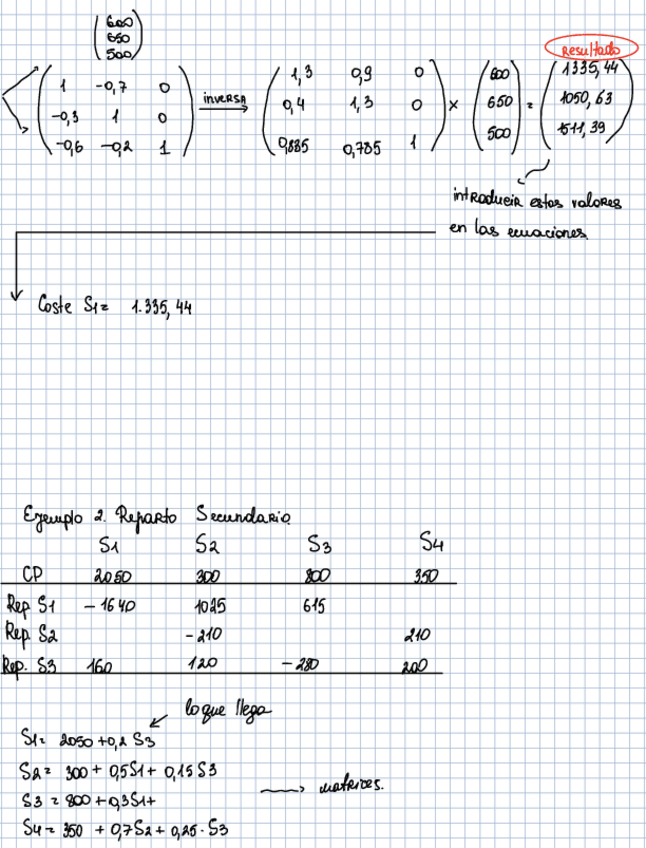 (600
650
500)
(1 -0,7 0
-0,3 1 0
-0,6 -0,2 1) inversa → (1,3 0,9 0
0,4 1,3 0
0,885 0,785 1) × (600
650
500) = (1335,44
1050,63
1511,39)
Resultado
introducir estos valores
en las ecuaciones.
Coste S1= 1.335,44
Ejemplo 2. Reparto Secundario
S1 S2 S3 S4
CP 2050 300 800 350
Rep S1 -1640 1025 615
Rep S2 -210 210
Rep. S3 160 120 -280 200
lo que llega
S1= 2050+0,2 S3
S2= 300+ 0,5S1+ 0,15S3
S3 = 800+0,3S1+
S4= 350 +0,7S2+0,25·S3
→ matrices.